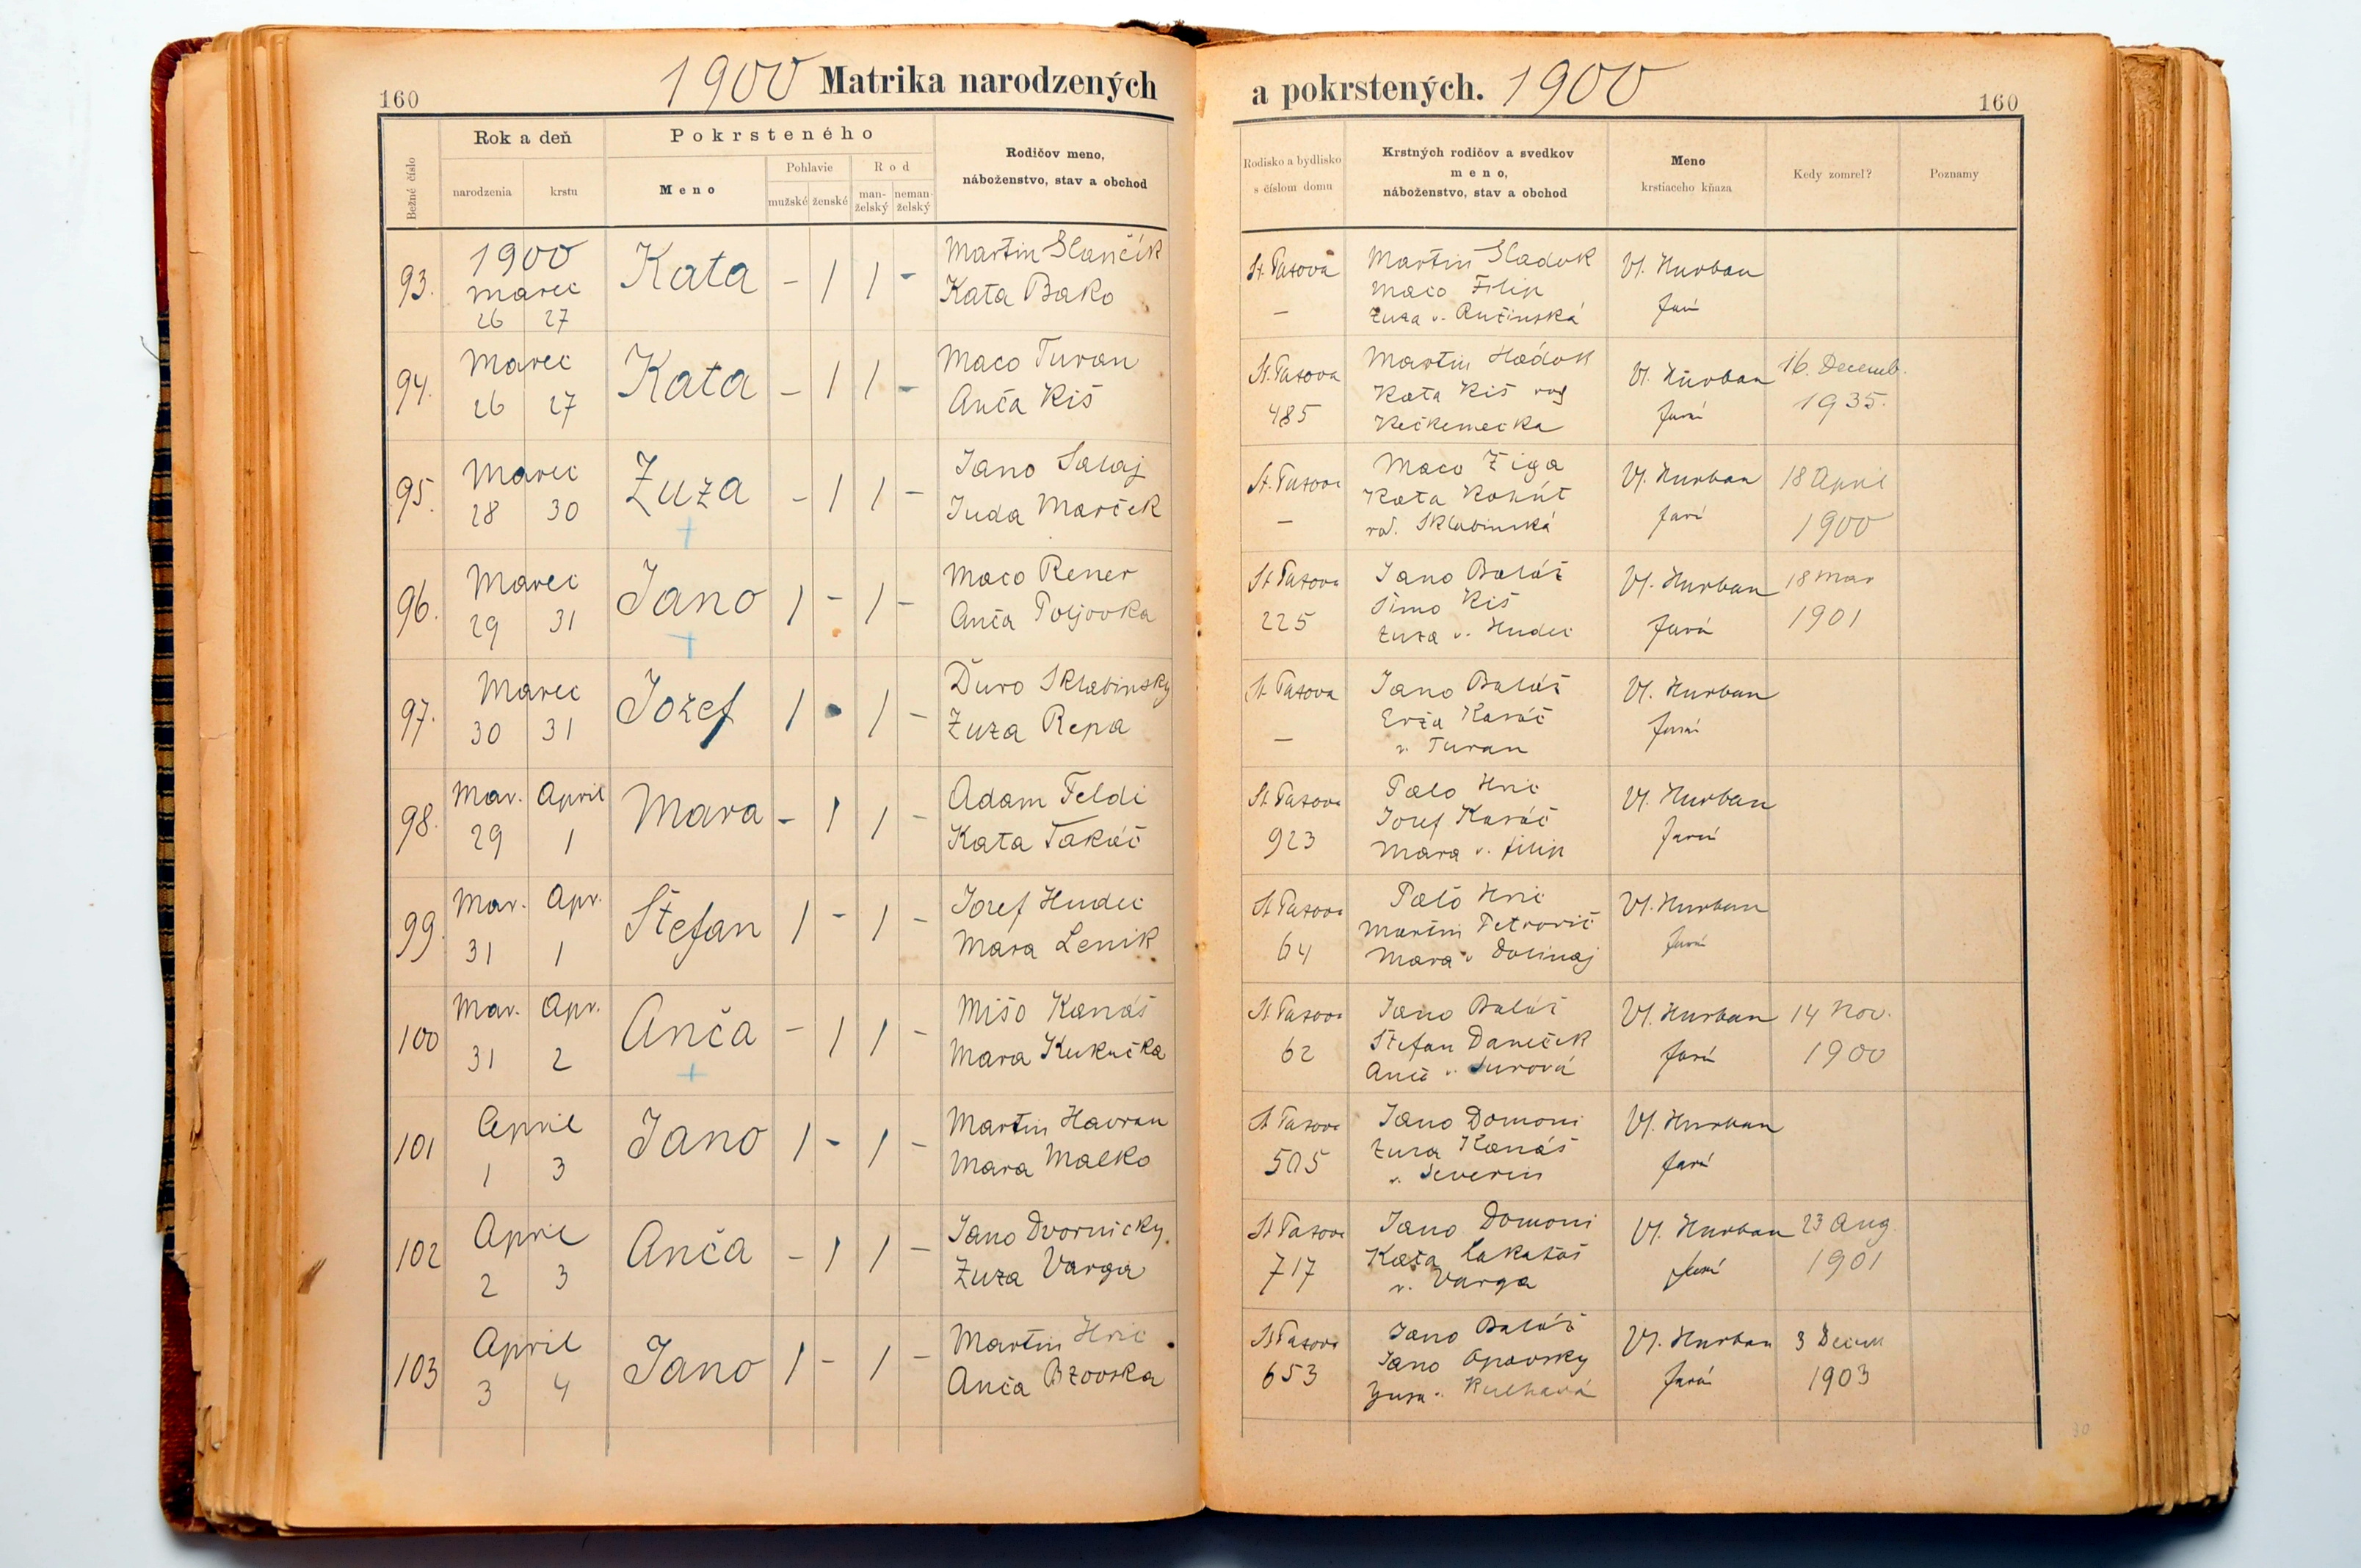 160
1900 Matrika narodzených
Bežné číslo
Rok a deň
narodzenia
krstu
Pokrsteného
Meno
Pohlavie
mužské
ženské
Rod
man-
želský
neman-
želský
Rodičov meno,
náboženstvo, stav a obchod
93.
1900
Marec
26 27
Kata
- 1 1 -
Martin Slančík
Kata Bako
94.
Marec
26 27
Kata
- 1 1 -
Maco Turan
Anča Kiš
95.
Marec
28 30
Zuza
- 1 1 -
Jano Salaj
Juda Marček
96.
Marec
29 31
Jano
1 - 1 -
Maco Rener
Anča Poljovka
97.
Marec
30 31
Jozef
1 - 1 -
Ďuro Sklabinsky
Zuza Repa
98.
Mar. April
29 1
Mara
- 1 1 -
Adam Feldi
Kata Takáč
99.
Mar. Apr.
31 1
Štefan
1 - 1 -
Jozef Hudec
Mara Lenik
100
Mar. Apr.
31 2
Anča
- 1 1 -
Mišo Kanáš
Mara Kukučka
101
April
1 3
Jano
1 - 1 -
Martin Havran
Mara Malko
102
April
2 3
Anča
- 1 1 -
Jano Dvornicky
Zuza Varga
103
April
3 4
Jano
1 - 1 -
Martin Hric
Anča Bzovska
a pokrstených. 1900
160
Rodisko a bydlisko
s číslom domu
Krstných rodičov a svedkov
meno,
náboženstvo, stav a obchod
Meno
krstiaceho kňaza
Kedy zomrel?
Poznamy
St. Pazova
-
Martin Sladok
Maco Filip
Zuza r. Ručinská
Vl. Hurban
farár
St. Pazova
485
Martin Hládok
Kata Kiš rod
Kečkemecka
Vl. Hurban
farár
16. Decemb.
1935.
St. Pazova
-
Maco Žiga
Kata Kohút
rod. Sklabinská
Vl. Hurban
farár
18 April
1900
St. Pazova
225
Jano Baláž
Šimo Kiš
Zuza r. Hudec
Vl. Hurban
farár
18 Mar
1901
St. Pazova
-
Jano Baláž
Erža Kováč
r. Turan
Vl. Hurban
farár
St. Pazova
923
Palo Hric
Jozef Kováč
Mara r. Filip
Vl. Hurban
farár
St. Pazova
64
Palo Hric
Martin Petrovič
Mara r. Dolinaj
Vl. Hurban
farár
St. Pazova
62
Jano Baláž
Štefan Daniček
Anča r. Surová
Vl. Hurban
farár
14 Nov.
1900
St. Pazova
505
Jano Domoni
Zuza Kanáš
r. Severin
Vl. Hurban
farár
St. Pazova
717
Jano Domoni
Kata Lakatoš
r. Varga
Vl. Hurban
farár
23 Aug.
1901
St. Pazova
653
Jano Baláž
Jano Opavsky
Zuza r. Kulhavá
Vl. Hurban
farár
3 Decem
1903